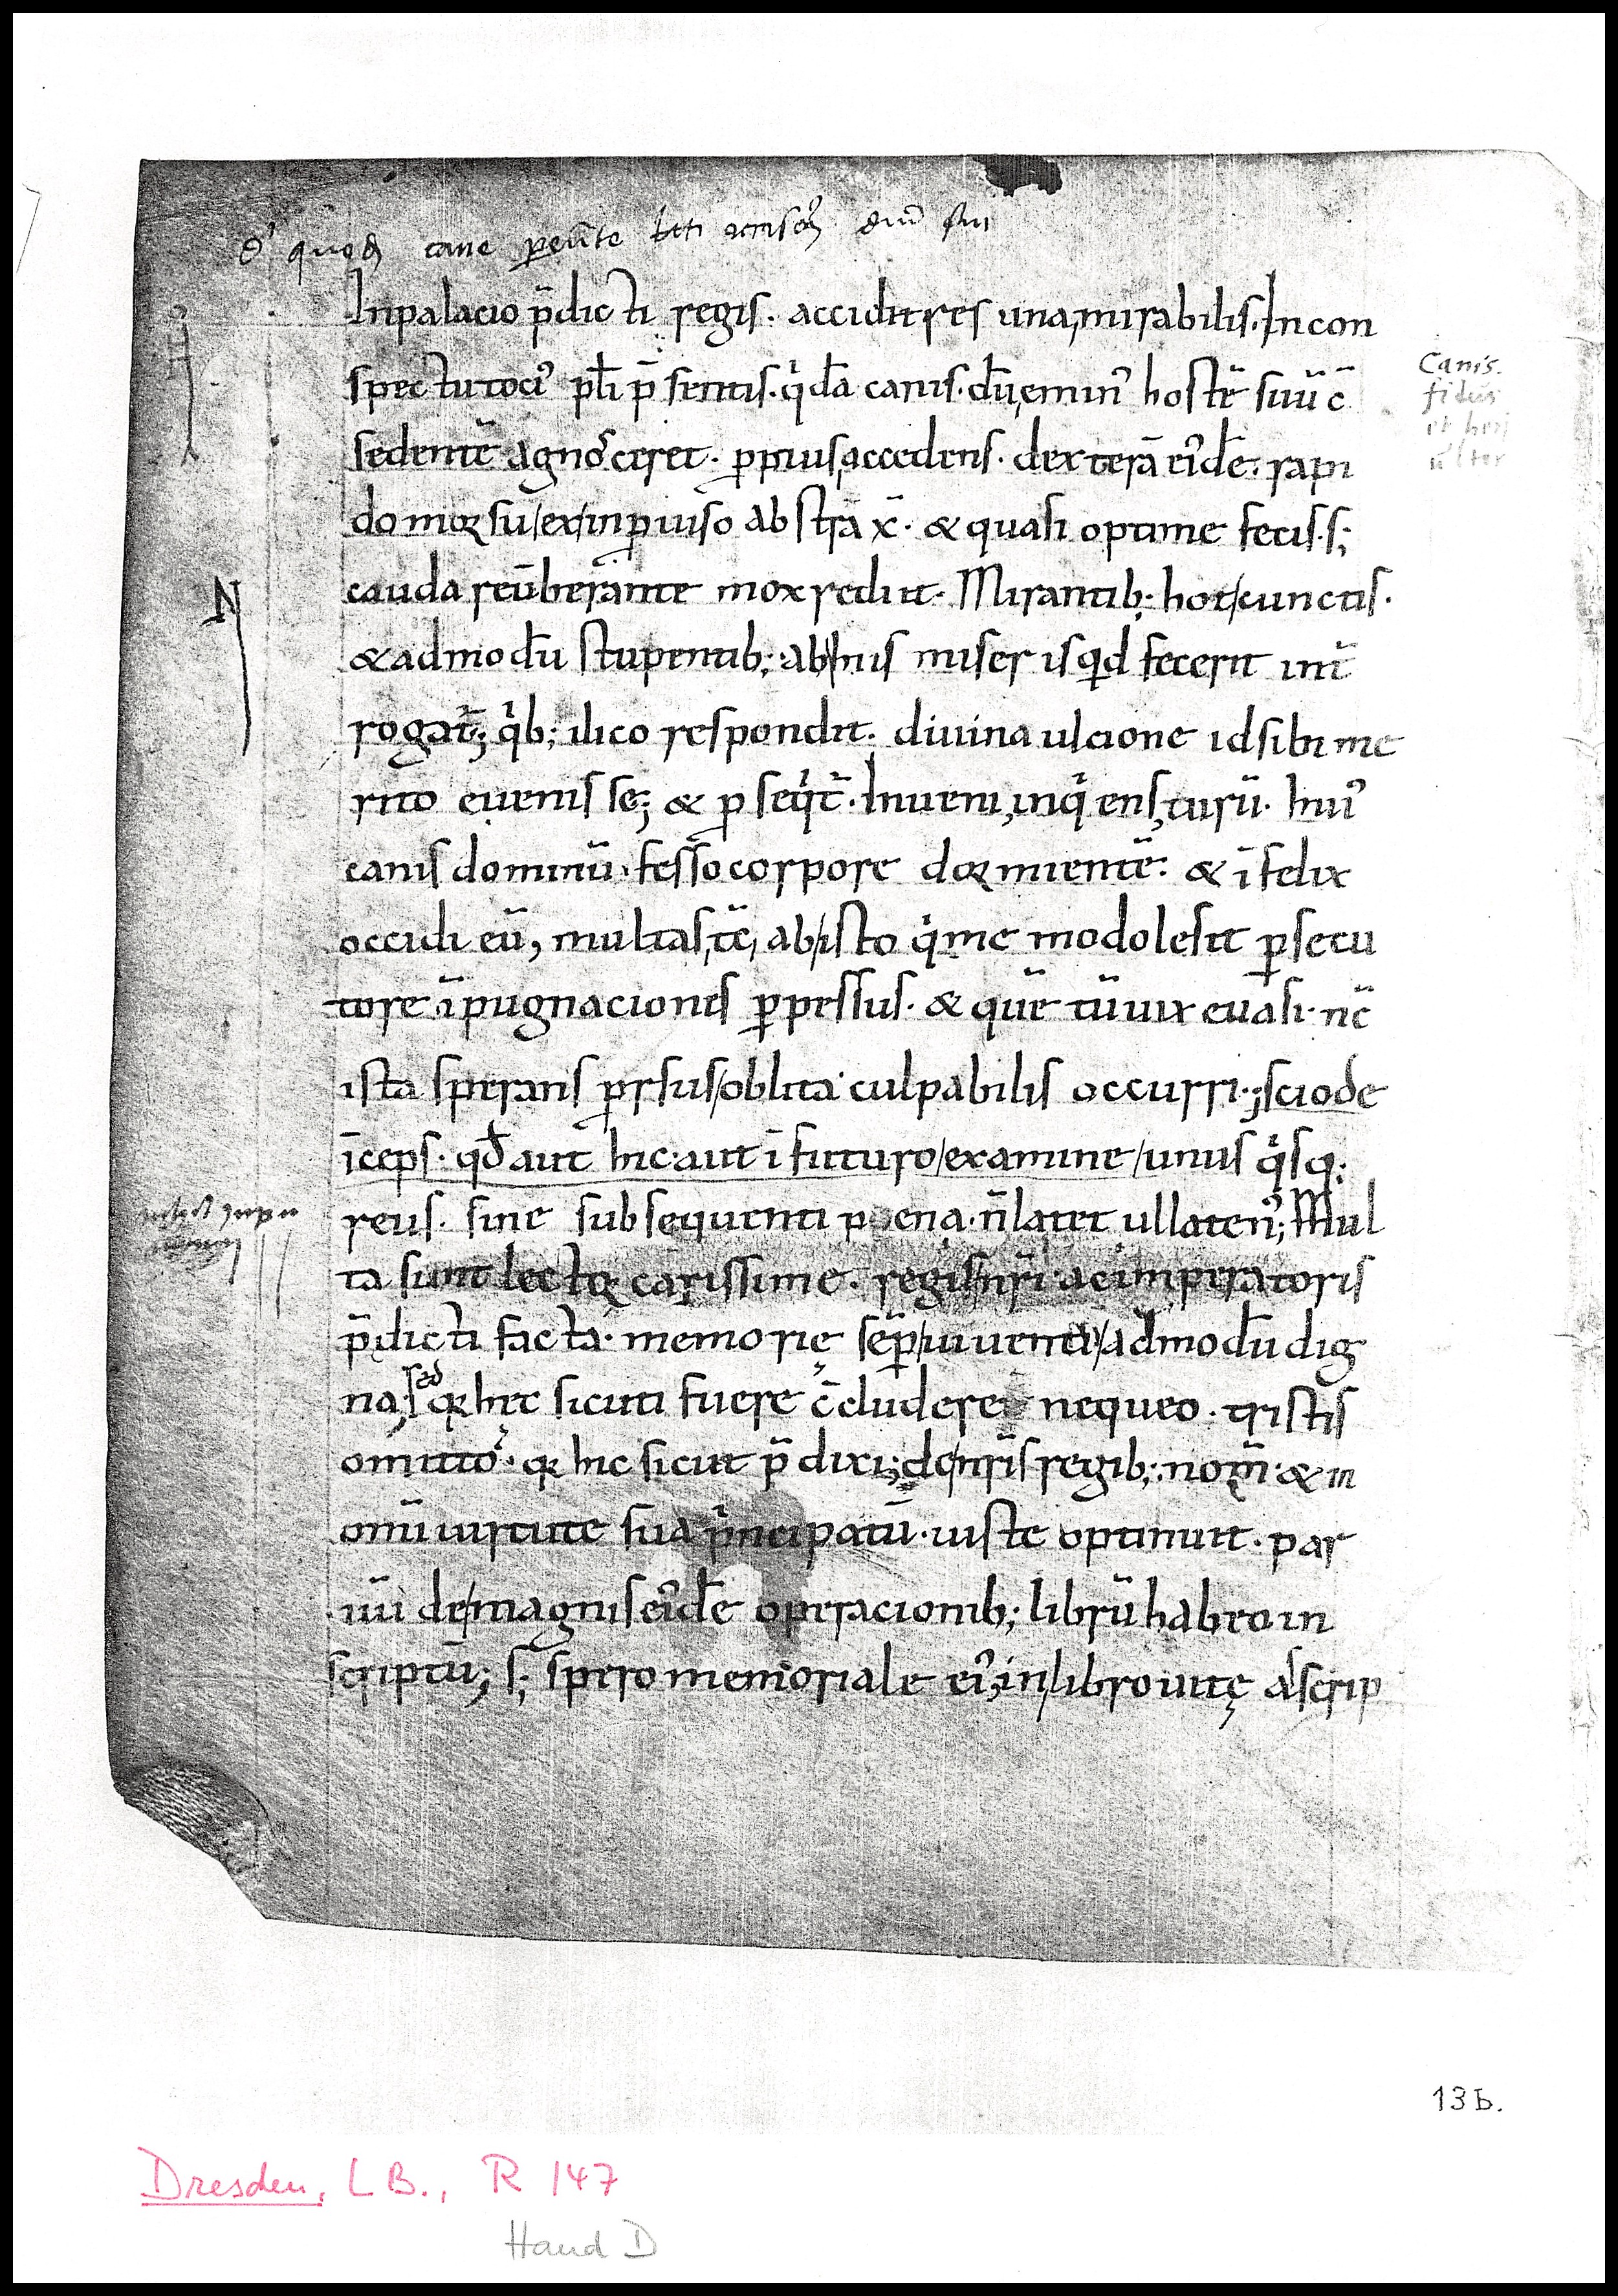 In palacio p̄dicti regis. accidit res una, mirabilis. In con
spectu toci᾽ pl̄i p̄sentis. qͥda canis. dū, emin᾽ hostē suū c̄
sedentē agnosceret. ꝓpius, accedens. dexterā ei᾽dē. rapi
do morsu ex inꝓuiso abstrax̄. & quasi optime fecis.s;
cauda reūberante mox rediit. Mirantib; hoc cunctis.
& admodū stupentib; ab hiis miser is qd fecerit int̄
rogat᷑; qͥb; ilico respondit. diuina ulcione id sibi me
rito euenisse; & ꝓseqͥt᷑. Inueni, inqͥens, turū. hui᾽
canis dominū. fesso corpore dormientē. & īfelix
occidi eū, multas, tc̄, ab isto qͥ me modo lesit ꝑsecu
tore īpugnaciones ꝑpessus. & quē tū uix euasi. nc̄
ista sperans ꝓrsus oblita culpabilis occurri.; scio de
īceps. qd̄ aut hic. aut ī futuro examine unus qͥsq;
reus. sine subsequenti poena. n̄ latet ullaten᾽; Mul
ta sunt lector carissime. regis nr̄i ac imperatoris
p̄dicti facta. memorie sēꝑ uiuenti admodū dig
na; sed qr hec sicuti fuere c̄cludere nequeo. tristis
omitto. qr hic sicut p̄dixi; de nr̄is regib; nom̄. & in
omī uirtute sua pͥncipatū. iuste optinuit. par
uū de magnis ei᾽dē operacionib; librū habeo in
scriptū; s; spero memoriale ei᾽, in libro uitę ascrip
Canis
fidus
et heri
ultor
N
13b.
Dresden, LB., R 147
Hand D